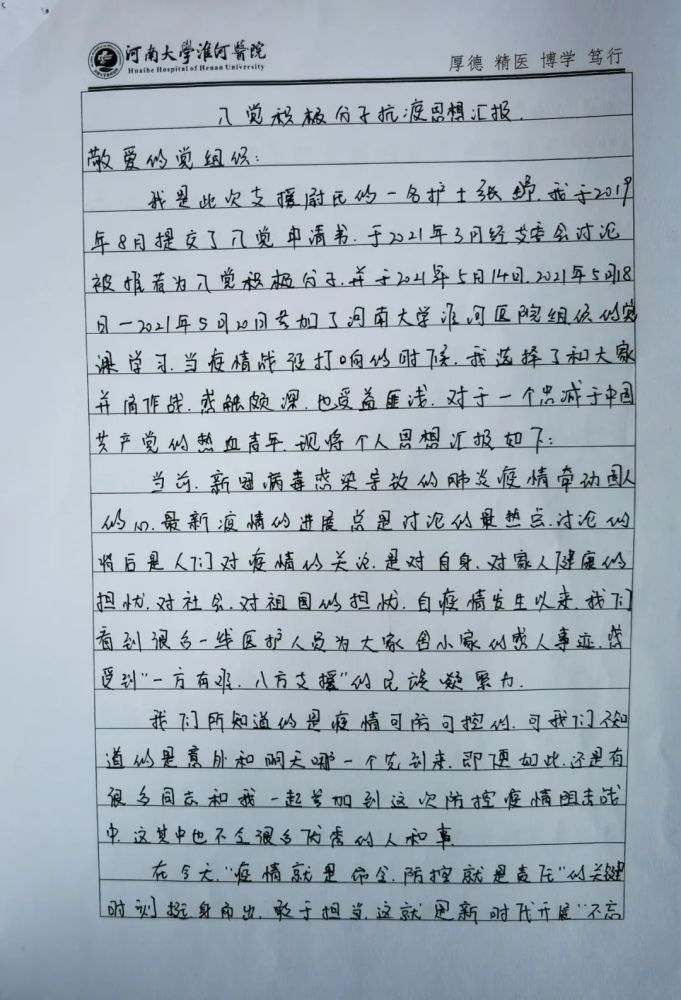 河南大學淮河醫院
Huaihe Hospital of Henan University
厚德 精医 博学 笃行
入党积极分子抗疫思想汇报.
敬爱的党组织:
我是此次支援尉氏的一名护士张 .我于2019
年8月提交了入党申请书.于2021年3月经支委会讨论
被推荐为入党积极分子.并于2021年5月14日.2021年5月18
日—2021年5月20日参加了河南大学淮河医院组织的党
课学习.当疫情战役打响的时候.我选择了和大家
并肩作战.感触颇深.也受益匪浅.对于一个忠诚于中国
共产党的热血青年.现将个人思想汇报如下:
当前.新冠病毒感染导致的肺炎疫情牵动国人
的心.最新疫情的进展总是讨论的最热点.讨论的
背后是人们对疫情的关心.是对自身、对家人健康的
担忧.对社会.对祖国的担忧.自疫情发生以来.我们
看到很多一线医护人员为大家舍小家的感人事迹.感
受到“一方有难.八方支援”的民族凝聚力.
我们所知道的是疫情可防可控的.可我们不知
道的是意外和明天哪一个先到来.即便如此.还是有
很多同志和我一起参加到这次防控疫情阻击战
中.这其中也不乏很多优秀的人和事.
在今天.“疫情就是命令.防控就是责任”的关键
时刻挺身而出.敢于担当.这就是新时代开展“不忘